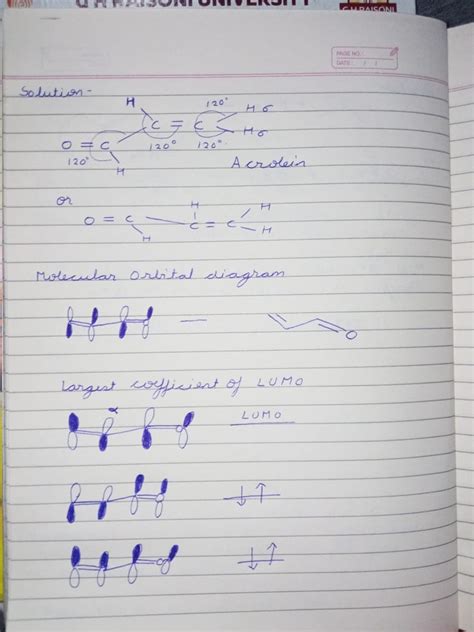 G H RAISONI UNIVERSITY
G H RAISONI
PAGE NO.:
DATE: / /
Solution-
H 120° H σ
C = C H σ
O = C 120° 120°
120° H
Acrolein
or
H H
O = C C = C H
H
Molecular Orbital diagram
— O
Largest coefficient of LUMO
LUMO